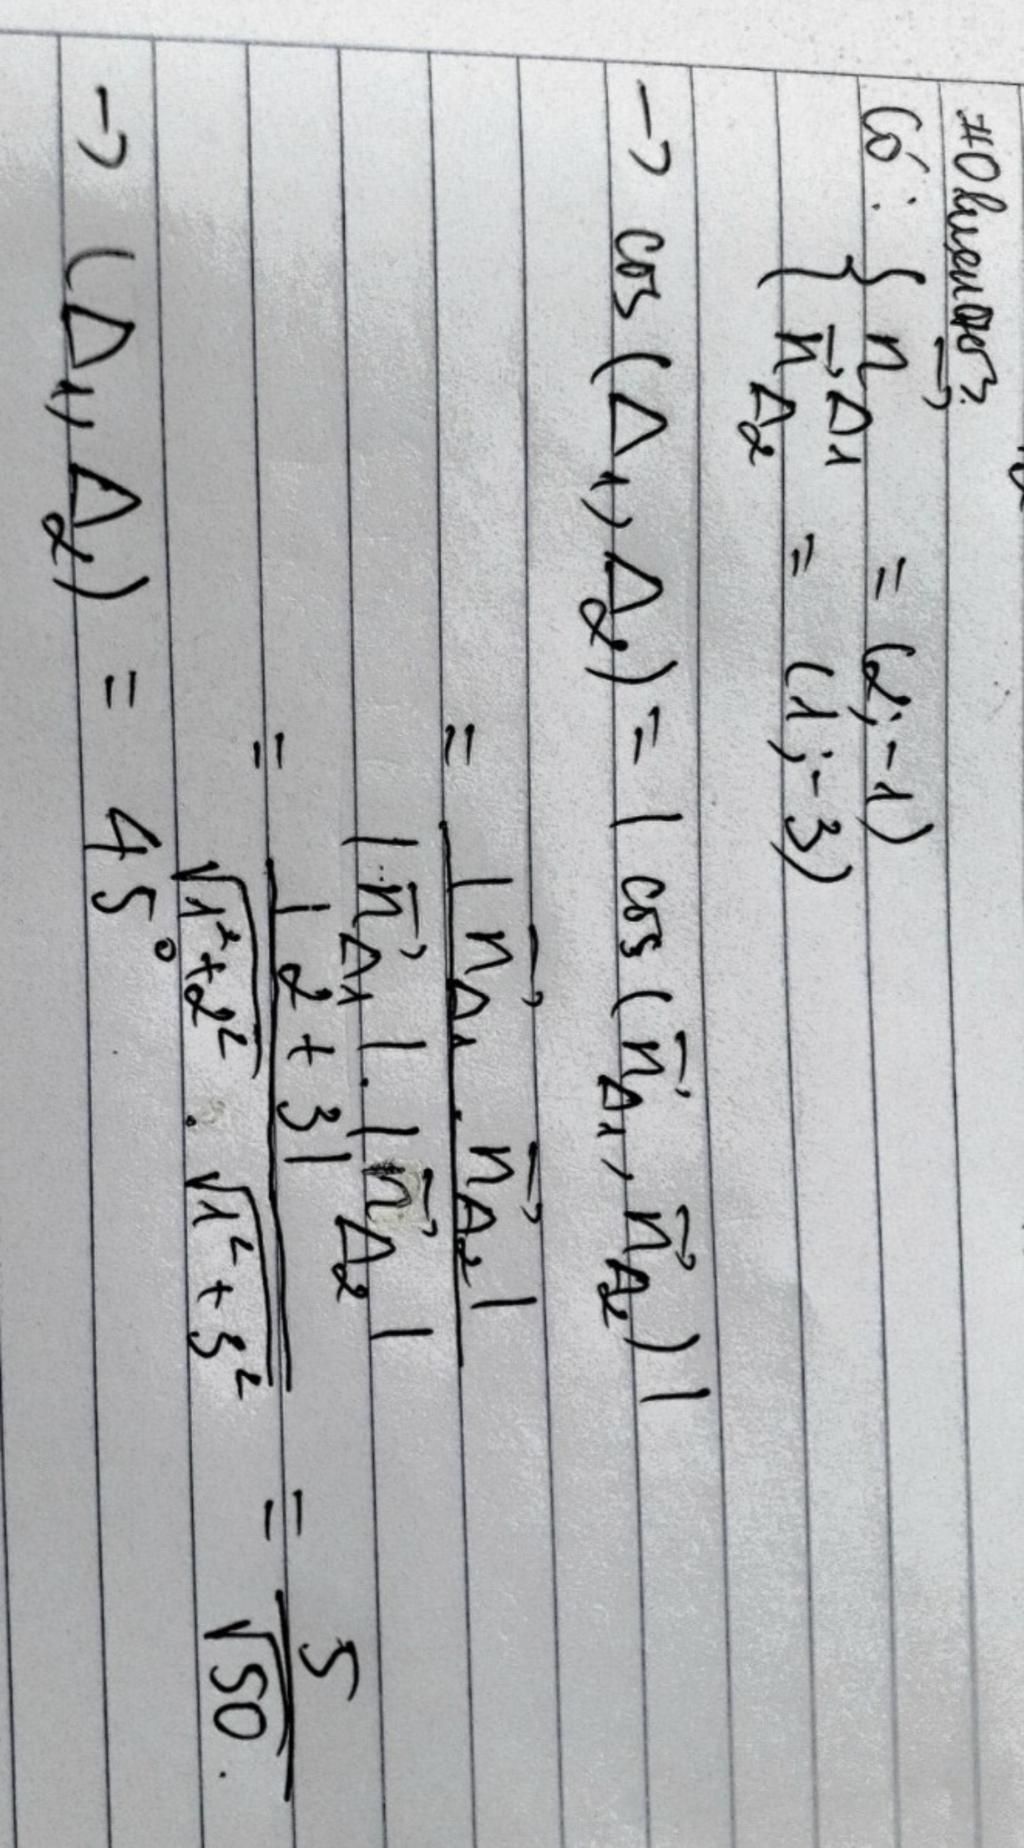 Có: { n⃗Δ1 = (2; -1)
{ n⃗Δ2 = (1; -3)
→ cos (Δ1, Δ2) = | cos (n⃗Δ1, n⃗Δ2) |
= | n⃗Δ1 . n⃗Δ2 | / | n⃗Δ1 | . | n⃗Δ2 |
= | 2 + 3 | / √1² + 2² . √1² + 3² = 5 / √50 .
→ (Δ1, Δ2) = 45°